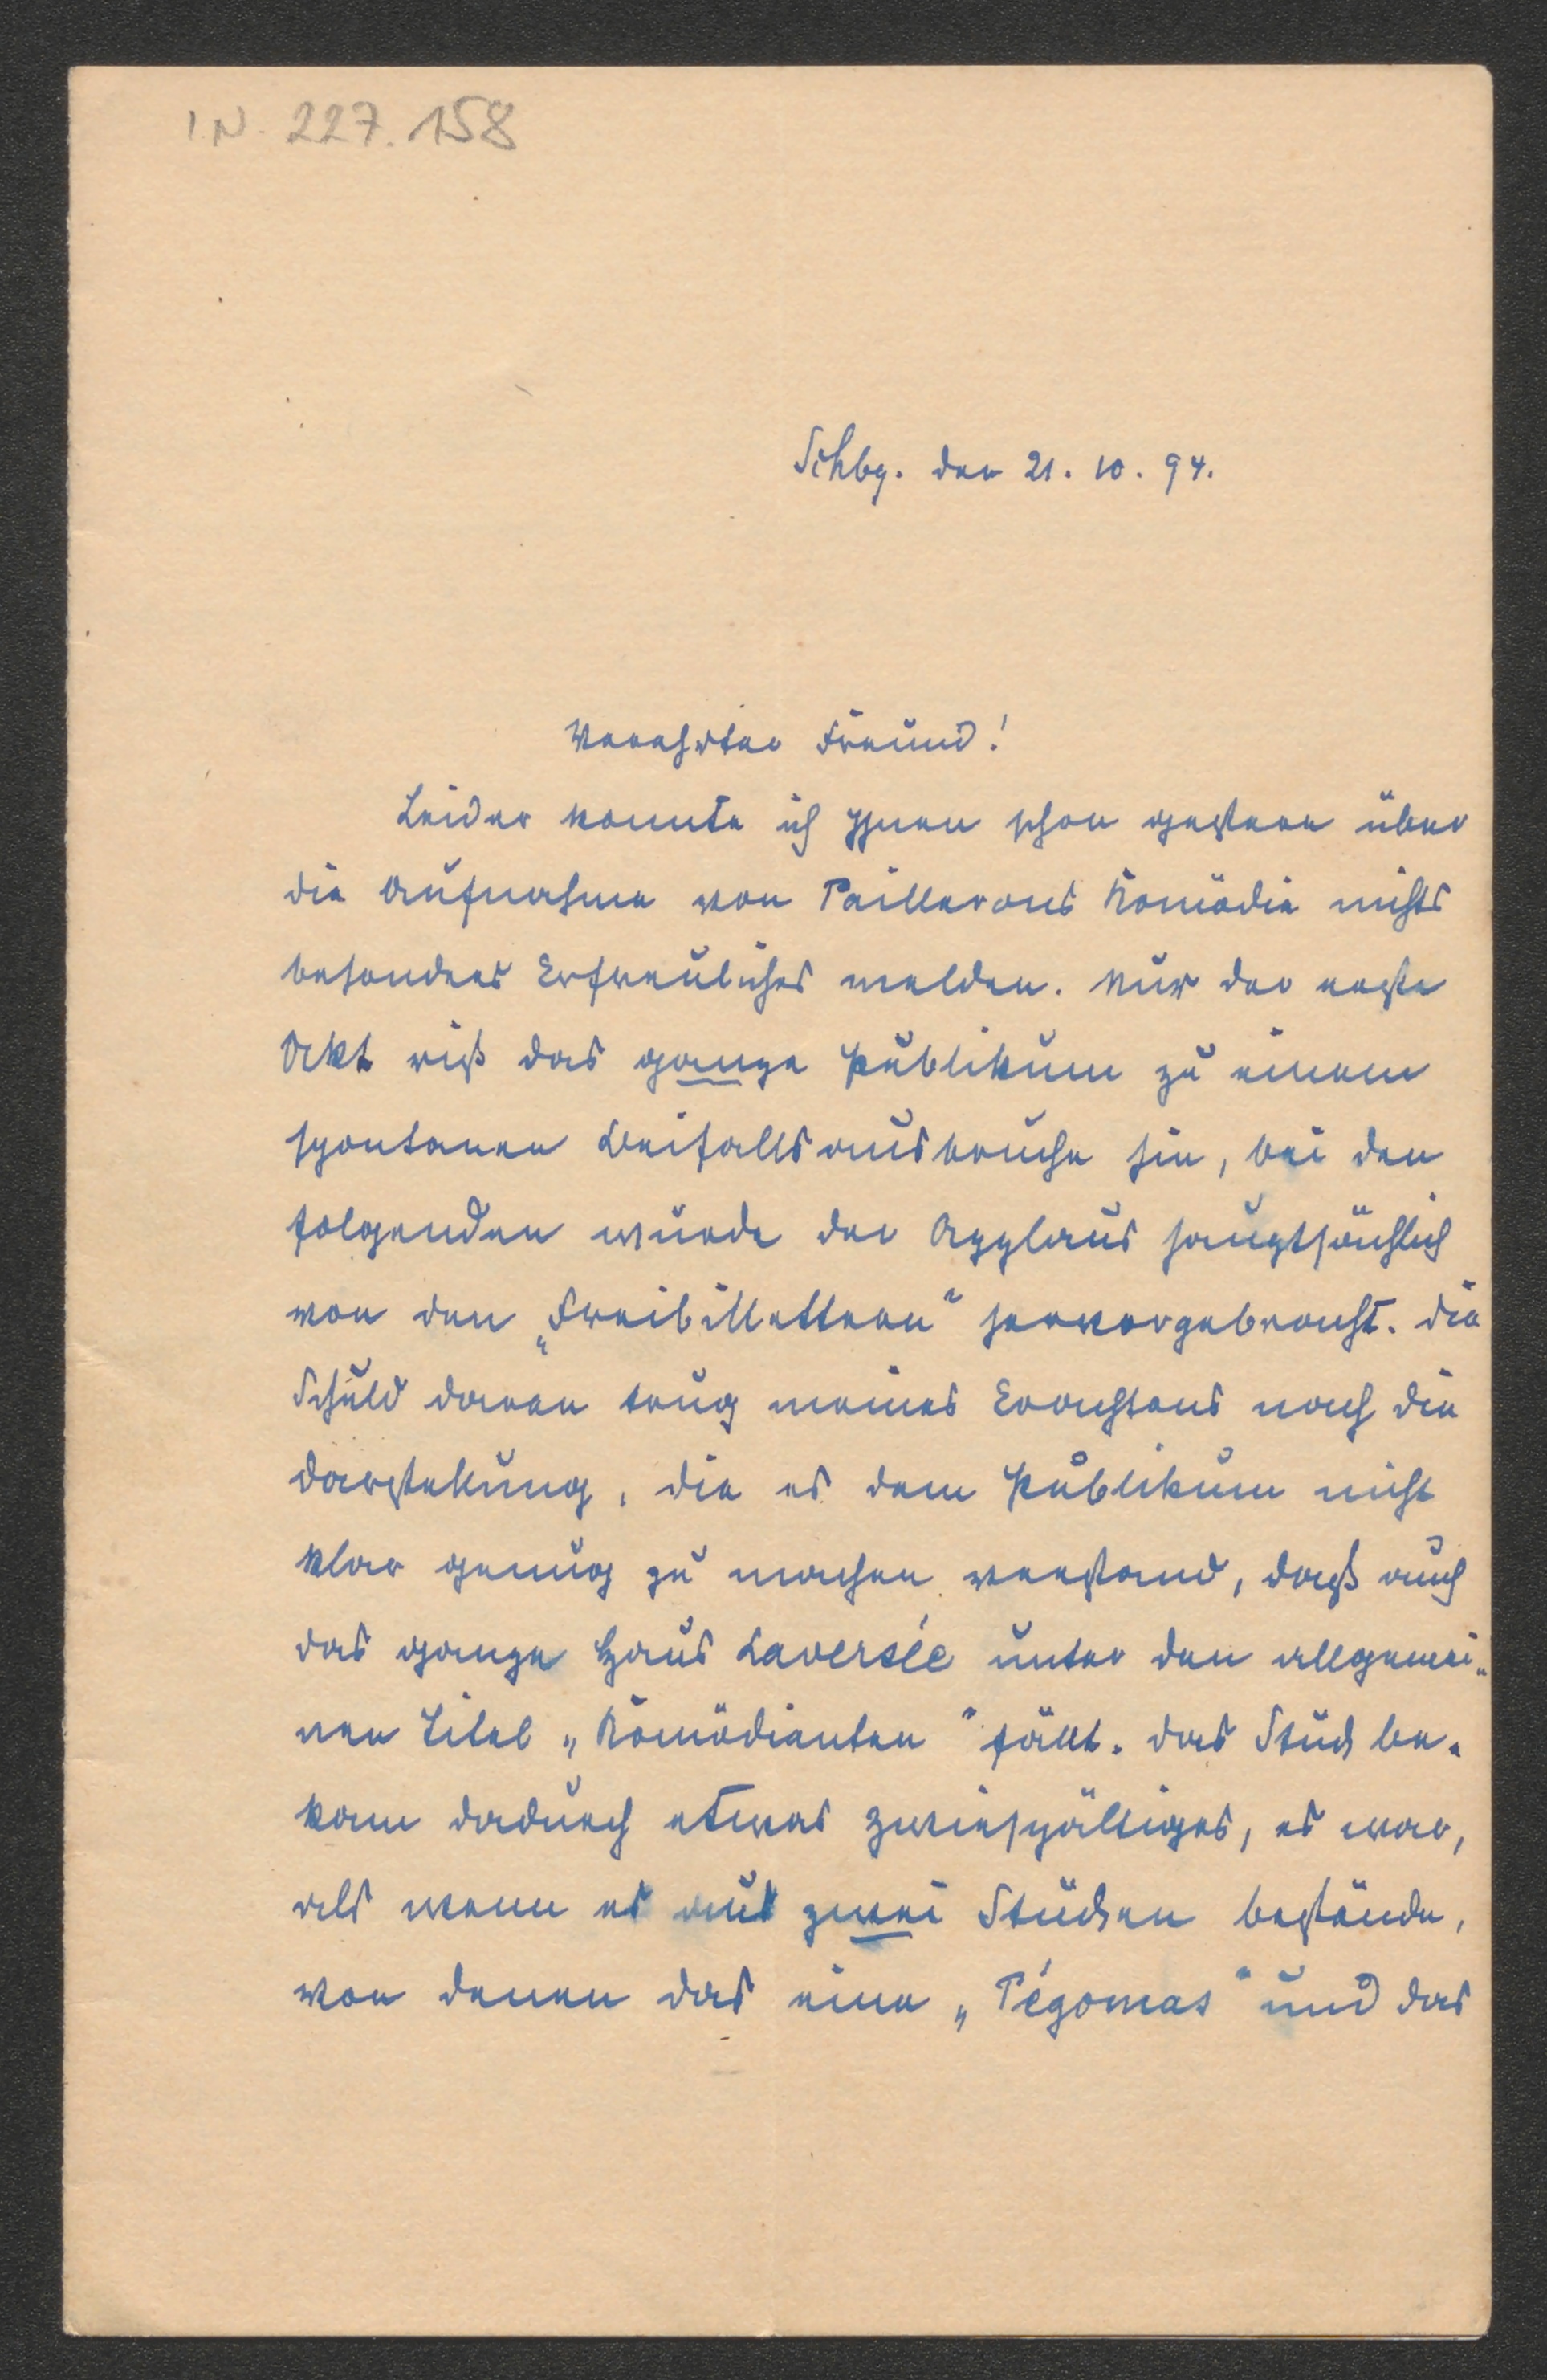 I.N. 227.158
Schbg. den 21. 10. 94.
Verehrter Freund!
Leider konnte ich Ihnen schon gestern über
die Aufnahme von Paillerons Komödie nichts
besonders Erfreuliches melden. Nur der erste
Akt riß das ganze Publikum zu einem
spontanen Beifallsausbruche hin, bei den
folgenden wurde der Applaus hauptsächlich
von den „Freibilletteen“ hervorgebracht. Die
Schuld daran trug meines Erachtens nach die
Darstellung, die es dem Publikum nicht
klar genug zu machen verstand, daß auch
das ganze Haus Laversée unter den allgemei-
nen Titel „Komödianten“ fällt. Das Stück be-
kam dadurch etwas Zwiespältiges, es war,
als wenn es aus zwei Stücken bestände,
von denen das eine „Pégomas“ und das